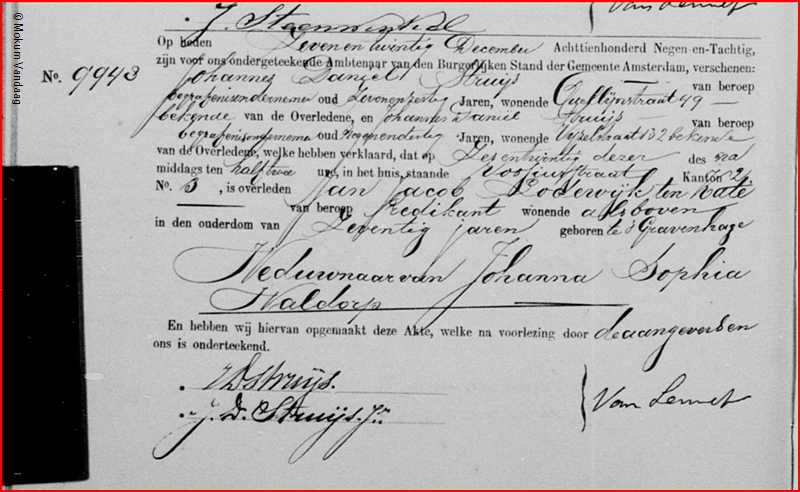 © Mokum Vandaag
J. Steenwinkel
Van Lennep
Op heden Zevenentwintig December Achttienhonderd Negen-en-Tachtig,
zijn voor ons ondergeteekende Ambtenaar van den Burgerlijken Stand der Gemeente Amsterdam, verschenen:
No. 9943
Johannes Daniel Struijs van beroep
begrafenisondernemer oud Zevenenzestig Jaren, wonende Quellijnstraat 49
bekende van de Overledene, en Johannes Daniel Struijs van beroep
begrafenisondernemer oud Negenendertig Jaren, wonende Vijzelstraat 132 bekende
van de Overledene, welke hebben verklaard, dat op Zesentwintig dezer des na
middags ten half twee ure, in het huis, staande Vossiusstraat Kanton 2
No. 3, is overleden Jan Jacob Lodewijk ten Kate
van beroep Predikant wonende alsboven
in den ouderdom van Zeventig jaren geboren te 's Gravenhage
Weduwnaar van Johanna Sophia
Waldorp
En hebben wij hiervan opgemaakt deze Akte, welke na voorlezing door de aangevers en
ons is onderteekend.
JD Struijs.
J. D. Struijs Jr.
Van Lennep